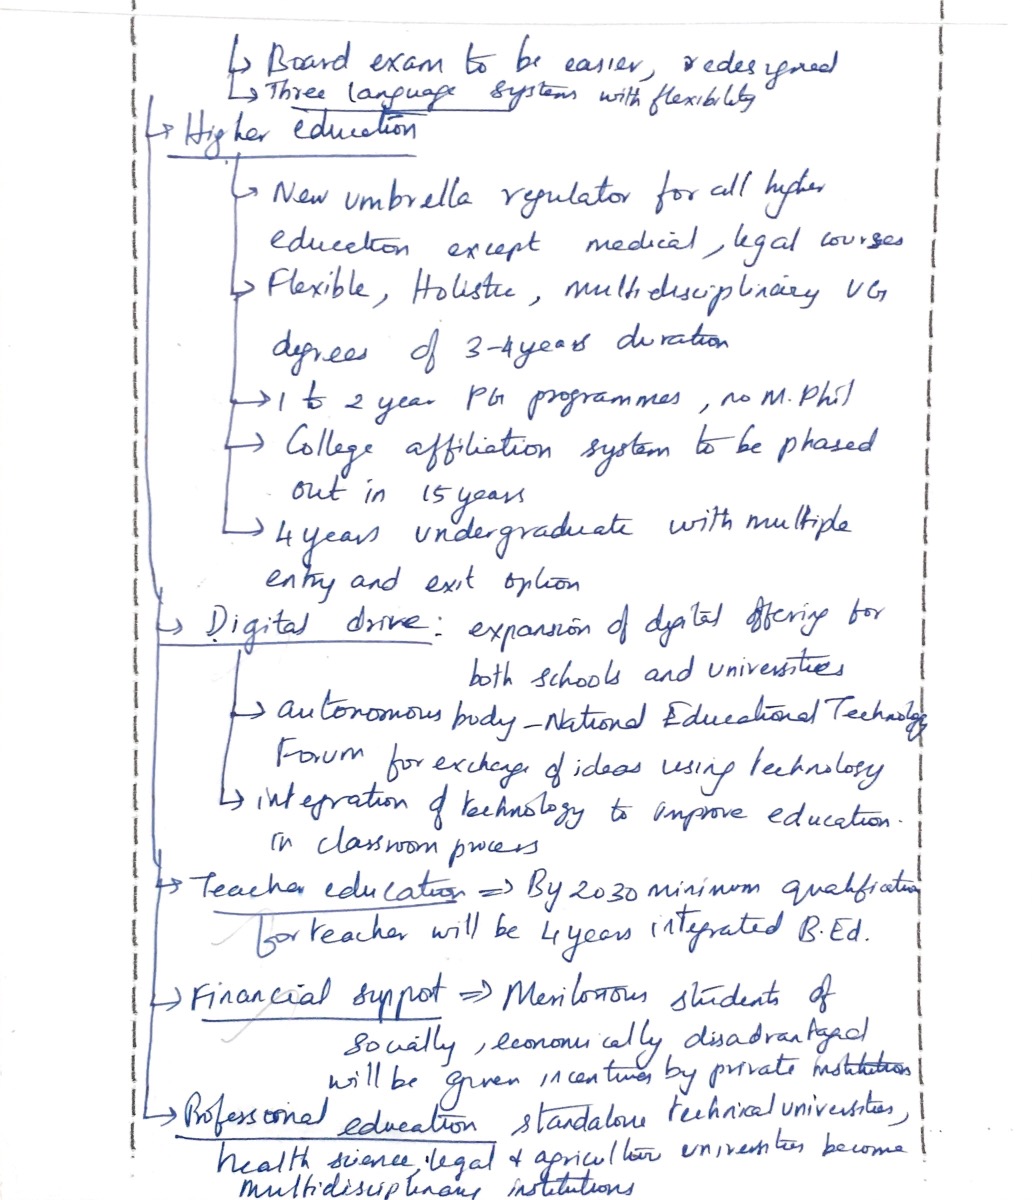 ↳ Board exam to be easier, redesigned
↳ Three language system with flexibility
→ Higher education
↳ New umbrella regulator for all higher
education except medical, legal courses
↳ Flexible, Holistic, multidisciplinary UG
degrees of 3-4 years duration
→ 1 to 2 year PG programmes, no M.Phil
→ College affiliation system to be phased
out in 15 years
→ 4 years undergraduate with multiple
entry and exit option
↳ Digital drive: expansion of digital offering for
both schools and universities
→ autonomous body - National Educational Technology
Forum for exchange of ideas using technology
↳ integration of technology to improve education.
in classroom process
→ Teacher education ⇒ By 2030 minimum qualification
for teacher will be 4 years integrated B.Ed.
→ Financial support ⇒ Meritorious students of
socially, economically disadvantaged
will be given incentives by private institution
→ Professional education standalone technical universities,
health science, legal & agriculture universities become
multidisciplinary institutions